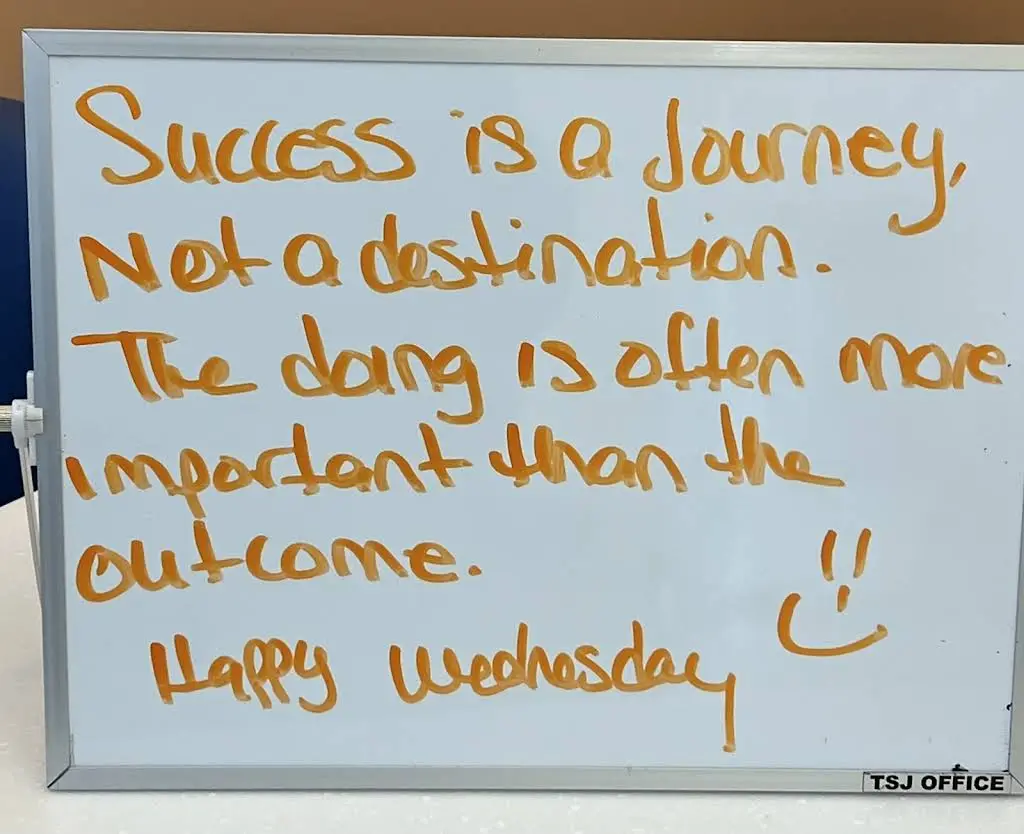 Success is a Journey,
Not a destination.
The doing is often more
important than the
outcome.
Happy Wednesday
TSJ OFFICE